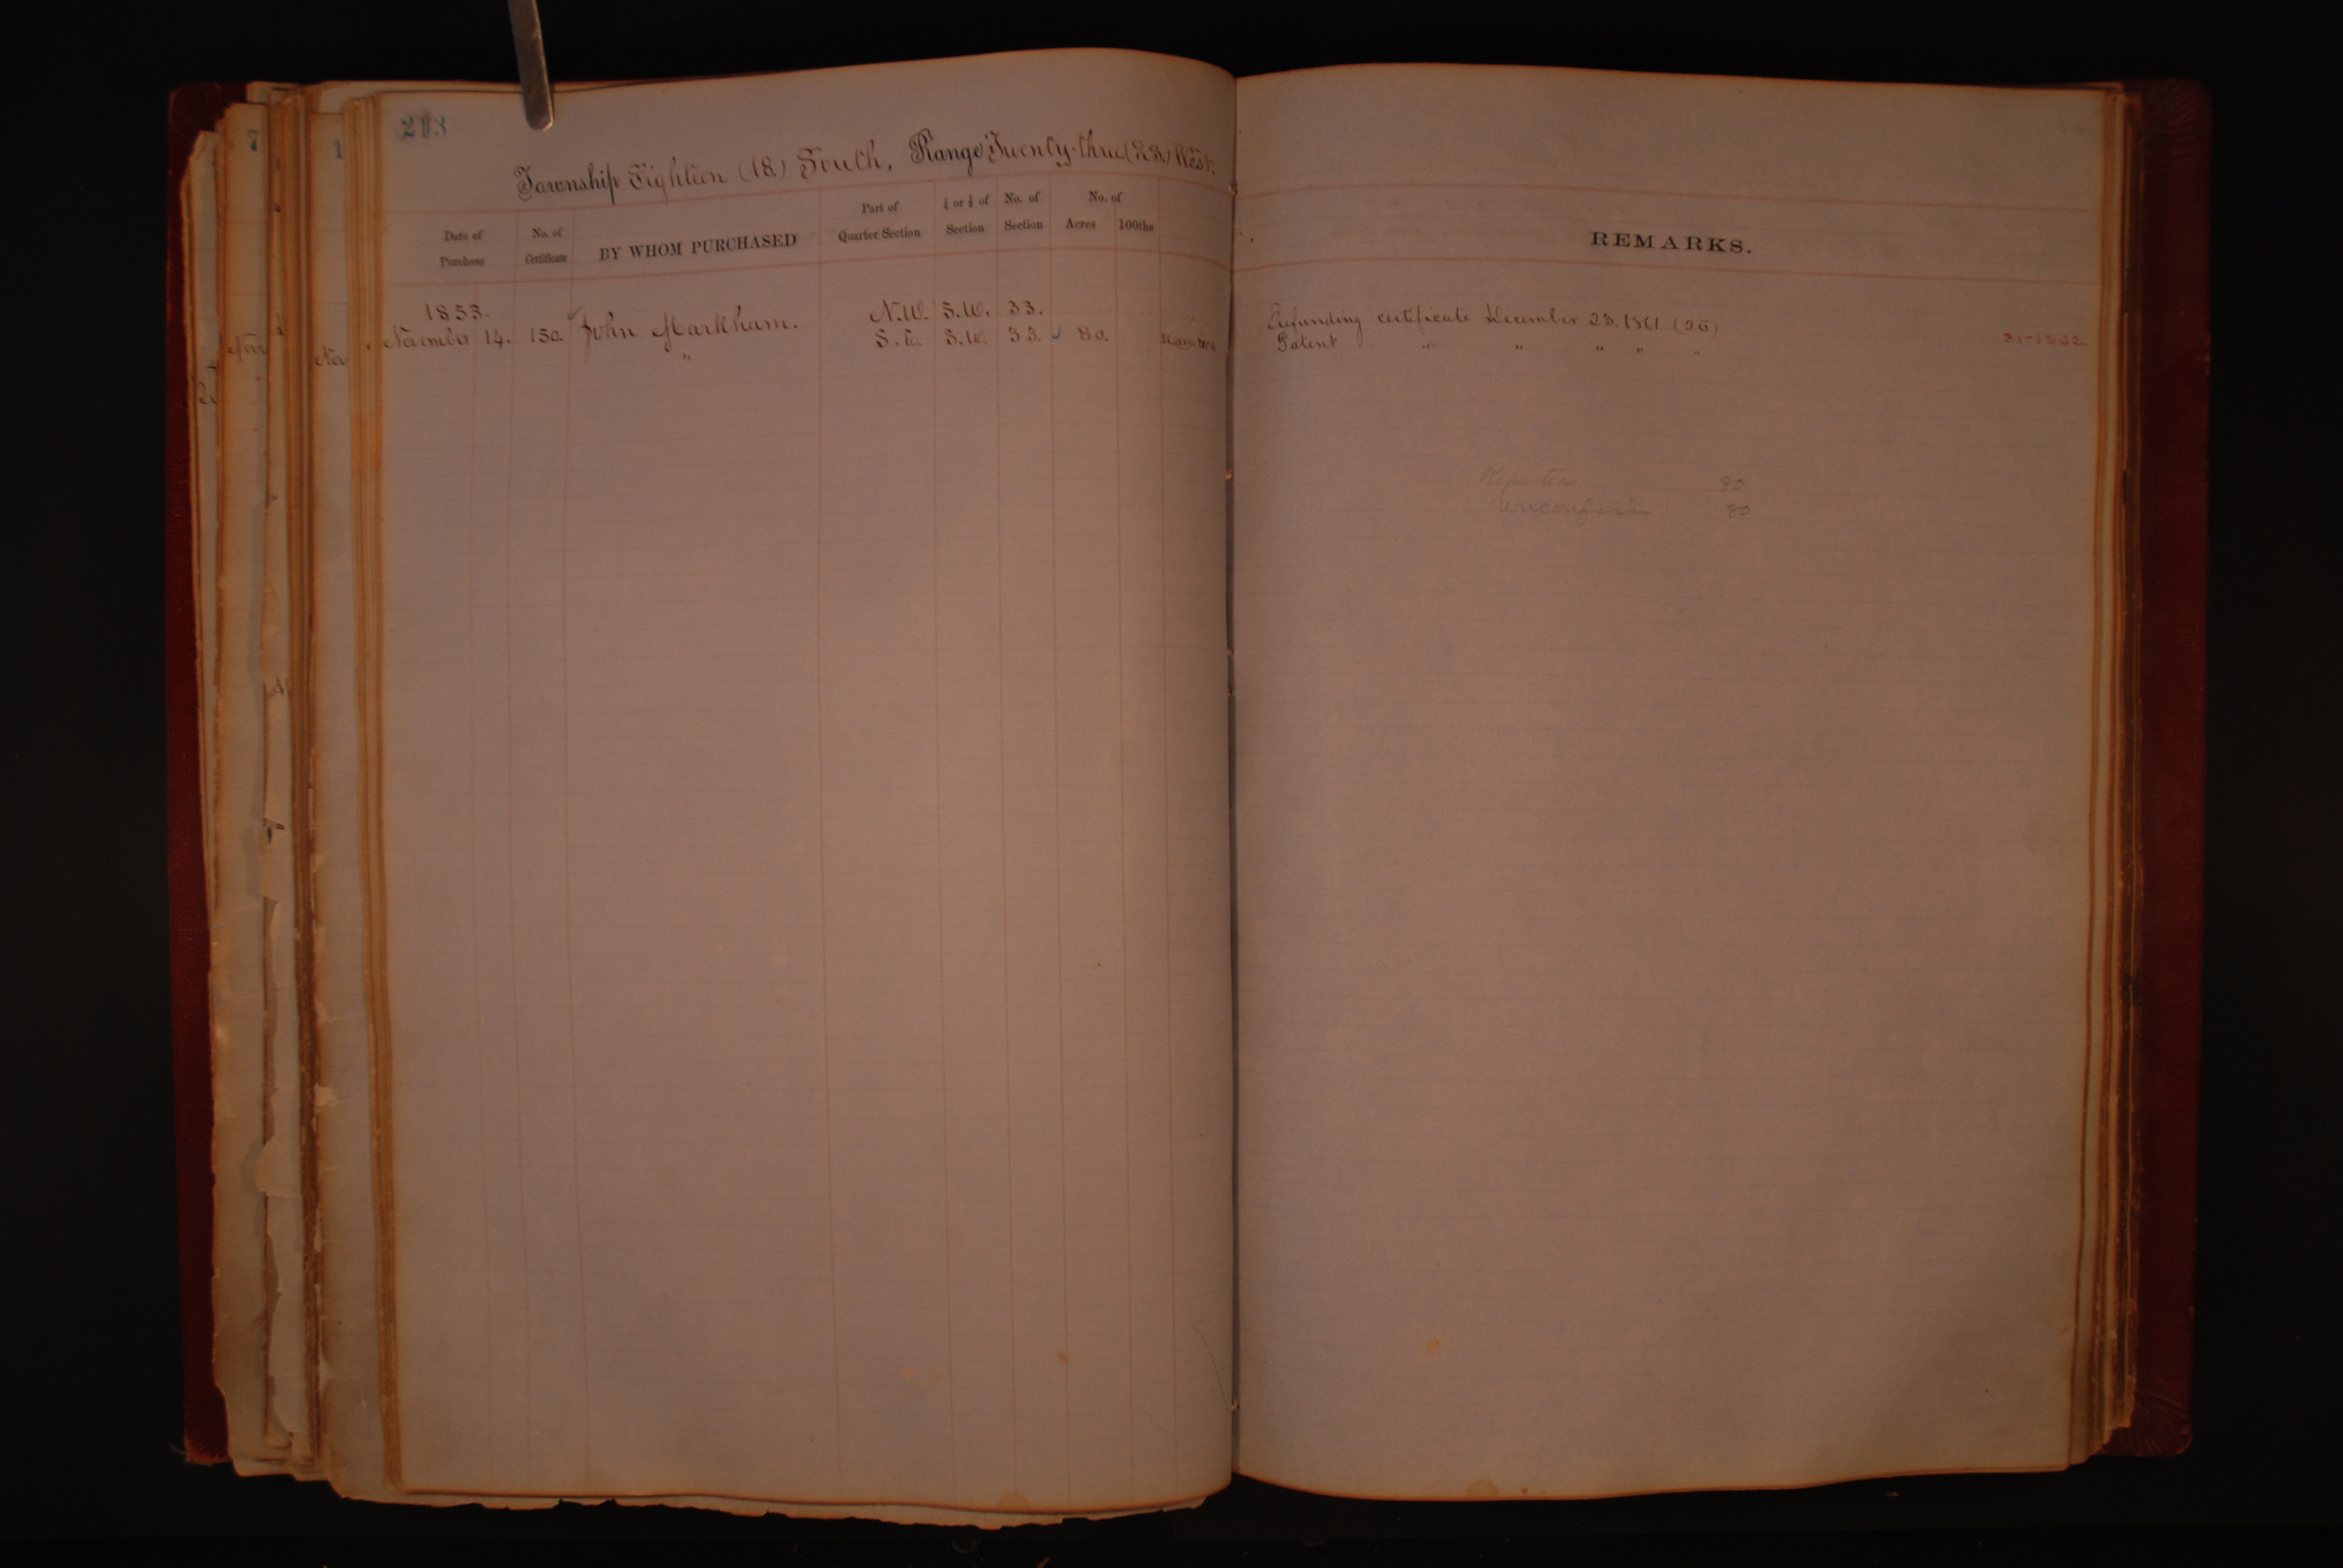 213
Township Eighteen (18) South, Range Twenty-three (23) West.
Date of Purchase
No. of Certificate
BY WHOM PURCHASED
Part of Quarter Section
¼ or ½ of Section
No. of Section
No. of
Acres 100ths
REMARKS.
1853.
November 14. 150 John Markham. N.W. S.W. 33. Refunding certificate December 23. 1861
" S.E. S.W. 33. 80. Patent " " " " "
80
80
7
1
Nov